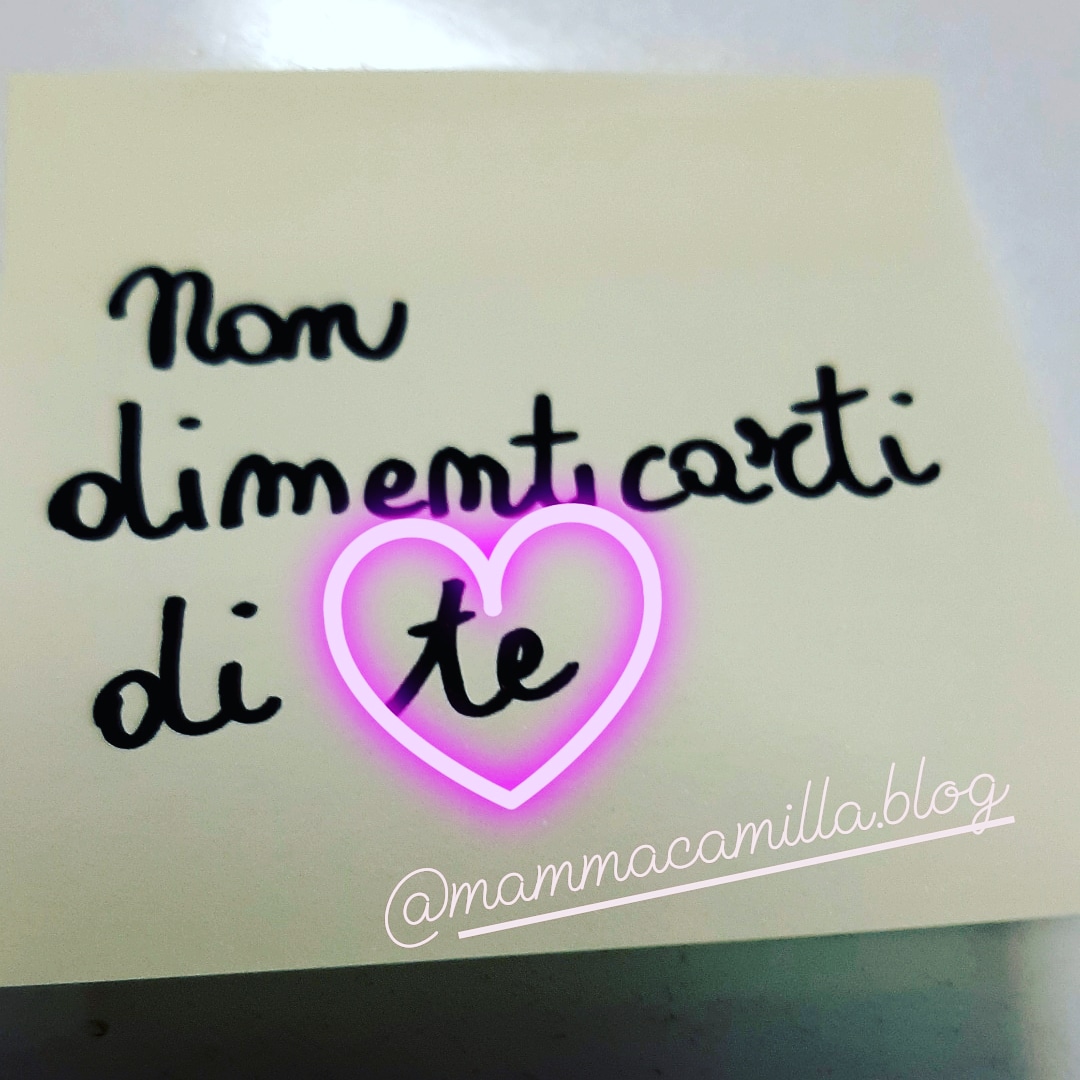 Non
dimenticarti
di te
@mammacamilla.blog